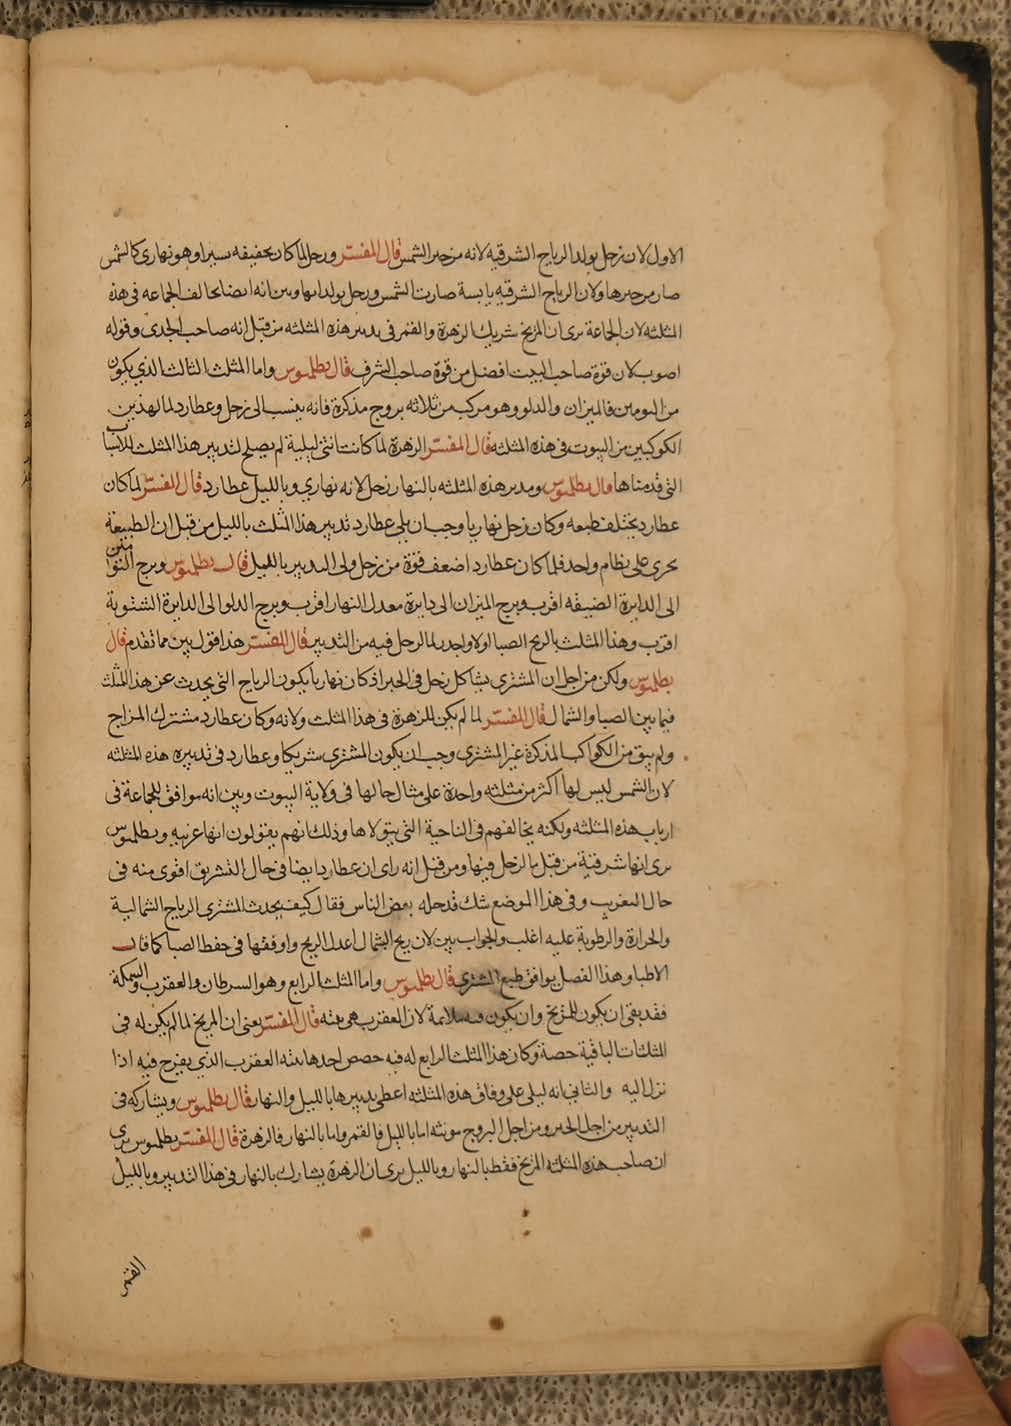 الاول لان زحل يولد الرياح الشرقيه لانه من حيز الشمس قال المفسر وزحل لما كان بحقيقه سيرا وهو نهاري كالشمس
صار من حيزها ولان الرياح الشرقيه يابسة صارت الشمس وزحل يولدانها وبين انه ايضا يخالف الجماعه في هذه
المثلثه لان الجماعة يرى ان المريخ شريك الزهرة والقمر في تدبير هذه المثلثه من قبل انه صاحب الجدي وقوله
اصوب لان قوة صاحب البيت افضل من قوة صاحب الشرف قال بطلميوس واما المثلث الثالث الذي يكون
من التومين فالميزان والدلو وهو مركب من ثلاثه بروج مذكرة فانه ينسب الى زحل وعطارد لما لهذين
الكوكبين من البيوت في هذه المثلثه قال المفسر الزهرة لما كانت انثى ليلية لم يصلح لتدبير هذا المثلث للاسباب
التي قدمناها قال بطلميوس ومدبر هذه المثلثه بالنهار زحل لانه نهاري وبالليل عطارد قال المفسر لما كان
عطارد يختلف طبعه وكان زحل نهاريا وجب ان يلي عطارد تدبير هذا المثلث بالليل من قبل ان الطبيعة
يجري على نظام واحد فلما كان عطارد اضعف قوة من زحل ولى التدبير بالليل قال بطلميوس وبرج التوامين
الى الدايرة الصيفيه اقرب وبرج الميزان الى دايرة معدل النهار اقرب وبرج الدلو الى الدايرة الشتوية
اقرب وهذا المثلث بالريح الصبا اولا واجدر لما لزحل فيه من التدبير قال المفسر هذا قول بين مما تقدم قال
بطلميوس ولكن من اجل ان المشتري يشاكل زحل في الحيز اذ كان نهاريا يكون الرياح التي يحدث عن هذا المثلث
فيما بين الصبا والشمال قال المفسر لما لم يكن للزهرة في هذا المثلث ولانه وكان عطارد مشترك المزاج
ولم يبق من الكواكب المذكرة غير المشتري وجب ان يكون المشتري شريكا وعطارد في تدبيره هذه المثلثه
لان الشمس ليس لها اكثر من مثلثه واحدة على مثال حالها في ولاية البيوت وبين انه موافق للجماعة في
ارباب هذه المثلثه ولكنه يخالفهم في الناحية التي يتولاها وذلك انهم يقولون انها غربيه وبطلميوس
يرى انها شرقية من قبل ما لزحل فيها ومن قبل انه راى ان عطارد ايضا في حال التشريق اقوى منه في
حال التغريب وفي هذا الموضع شك قد حله بعض الناس فقال كيف يحدث المشتري الرياح الشمالية
والحرارة والرطوبة عليه اغلب والجواب بين لان ريح الشمال اعدل الريح واوفقها في حفظ الصبا كما قال
الاطبا وهذا الفصل يوافق طبع المشتري قال بطلميوس واما المثلث الرابع وهو السرطان والعقرب والسمكة
فقد بقى ان يكون للمريخ وان يكون فيه سلايمة لان العقرب هي بيته قال المفسر يعني ان المريخ لما لم يكن له في
المثلثات الباقية حصة وكان هذا المثلث الرابع له فيه حصص احدها بيته العقرب الذي يفرح فيه اذا
نزل اليه والثاني انه ليلي على وفاق هذه المثلثه اعطى تدبيرها بالليل والنهار قال بطلميوس ويشاركه في
التدبير من اجل الحيز ومن اجل البروج مونثه اما بالليل فالقمر واما بالنهار فالزهرة قال المفسر بطلميوس يرى
ان صاحب هذه المثلثه المريخ فقط بالنهار وبالليل يرى ان الزهرة يشارك بالنهار في هذا التدبير وبالليل
القمر